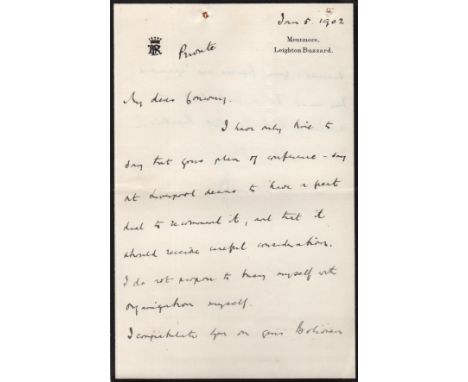 Jan 5. 1902
Mentmore,
Leighton Buzzard.
Private
My dear Conway.
I have only time to
say that your plan of conference - say
at Liverpool seems to have a great
deal to recommend it, and that it
should receive careful consideration.
I do not propose to busy myself with
organization myself.
I congratulate you on your